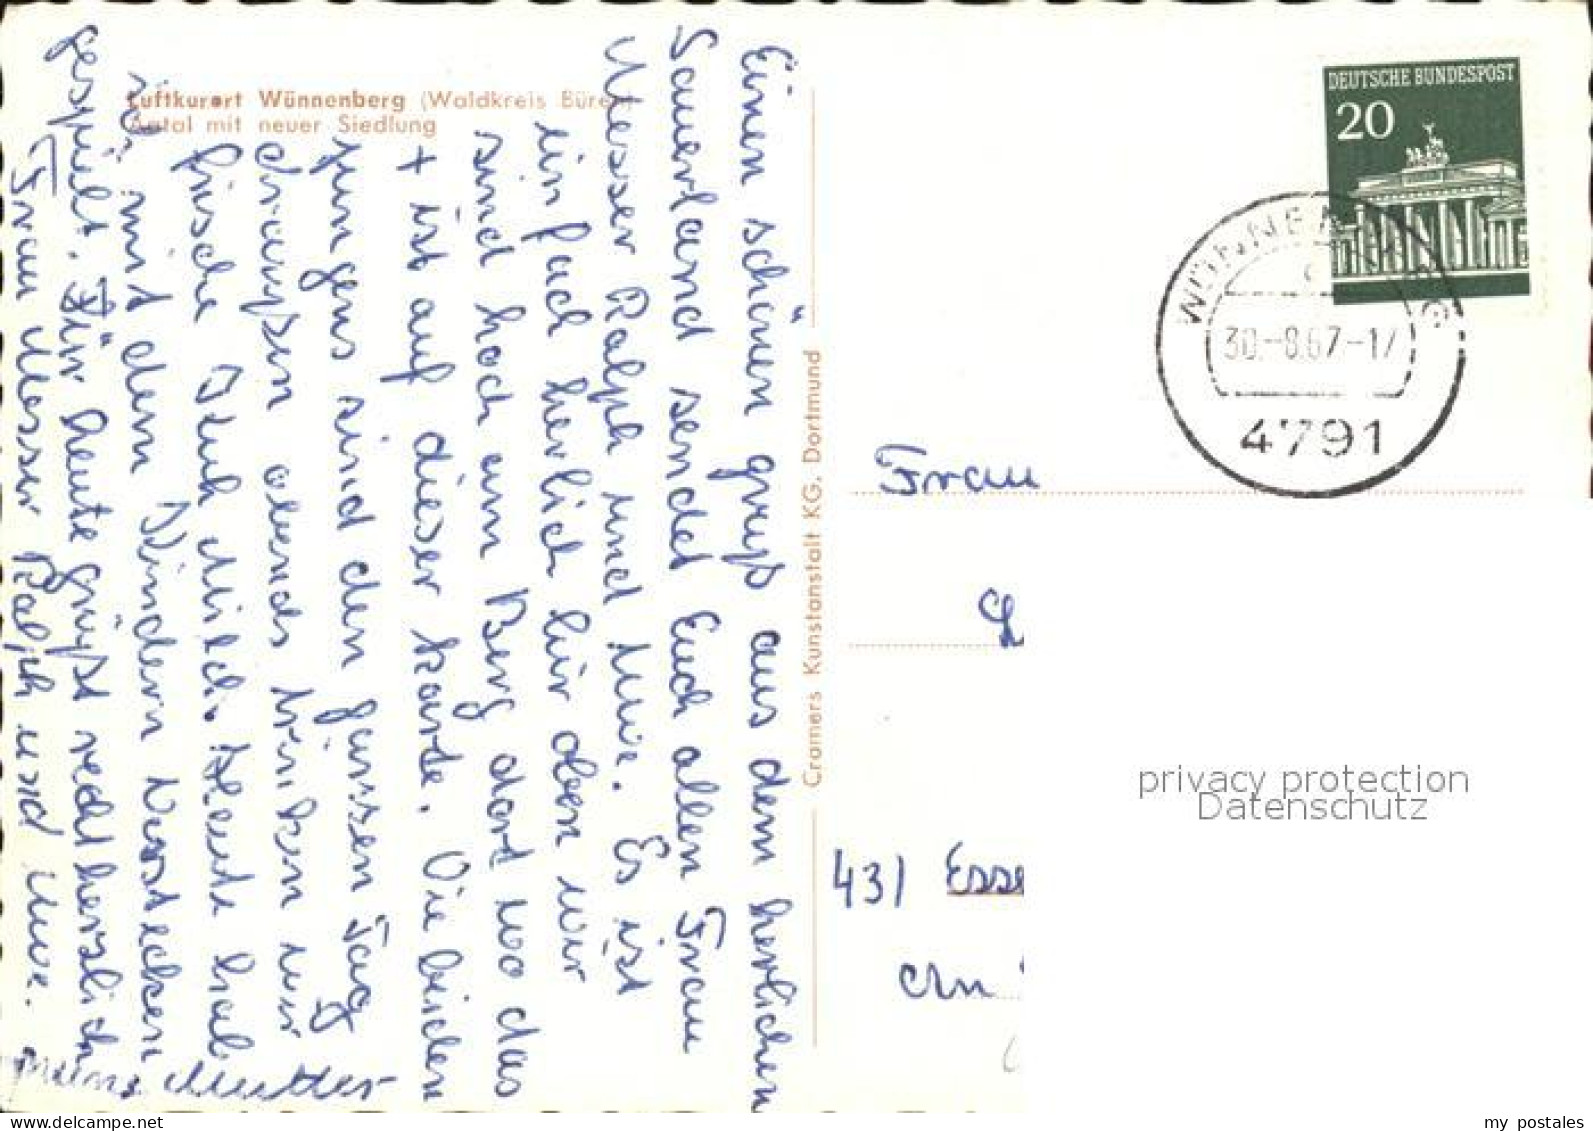 Luftkurort Wünnenberg (Waldkreis Büren)
Aatal mit neuer Siedlung
Einen schönen gruß aus dem herlichen
Sauerland sendet Euch allen Frau
Messer Ralph und Uwe. Es ist
einfach herlich hir oben wir
sind hoch am Berg dort wo das
+ ist auf dieser Karte. Die beiden
jungens sind den ganssen Tag
draußen abends trinken wir
frische Kuh Milch. Heute hab
mit dem Kindern verstecken
gespielt. Für heute grüßt recht herzlich
Frau Messer Ralph und Uwe.
meine Mutter
Cramers Kunstanstalt KG, Dortmund
DEUTSCHE BUNDESPOST
20
WÜNNENBERG
30.-8.67-17
4791
Frau
43) Esse
Am
privacy protection
Datenschutz
my postales